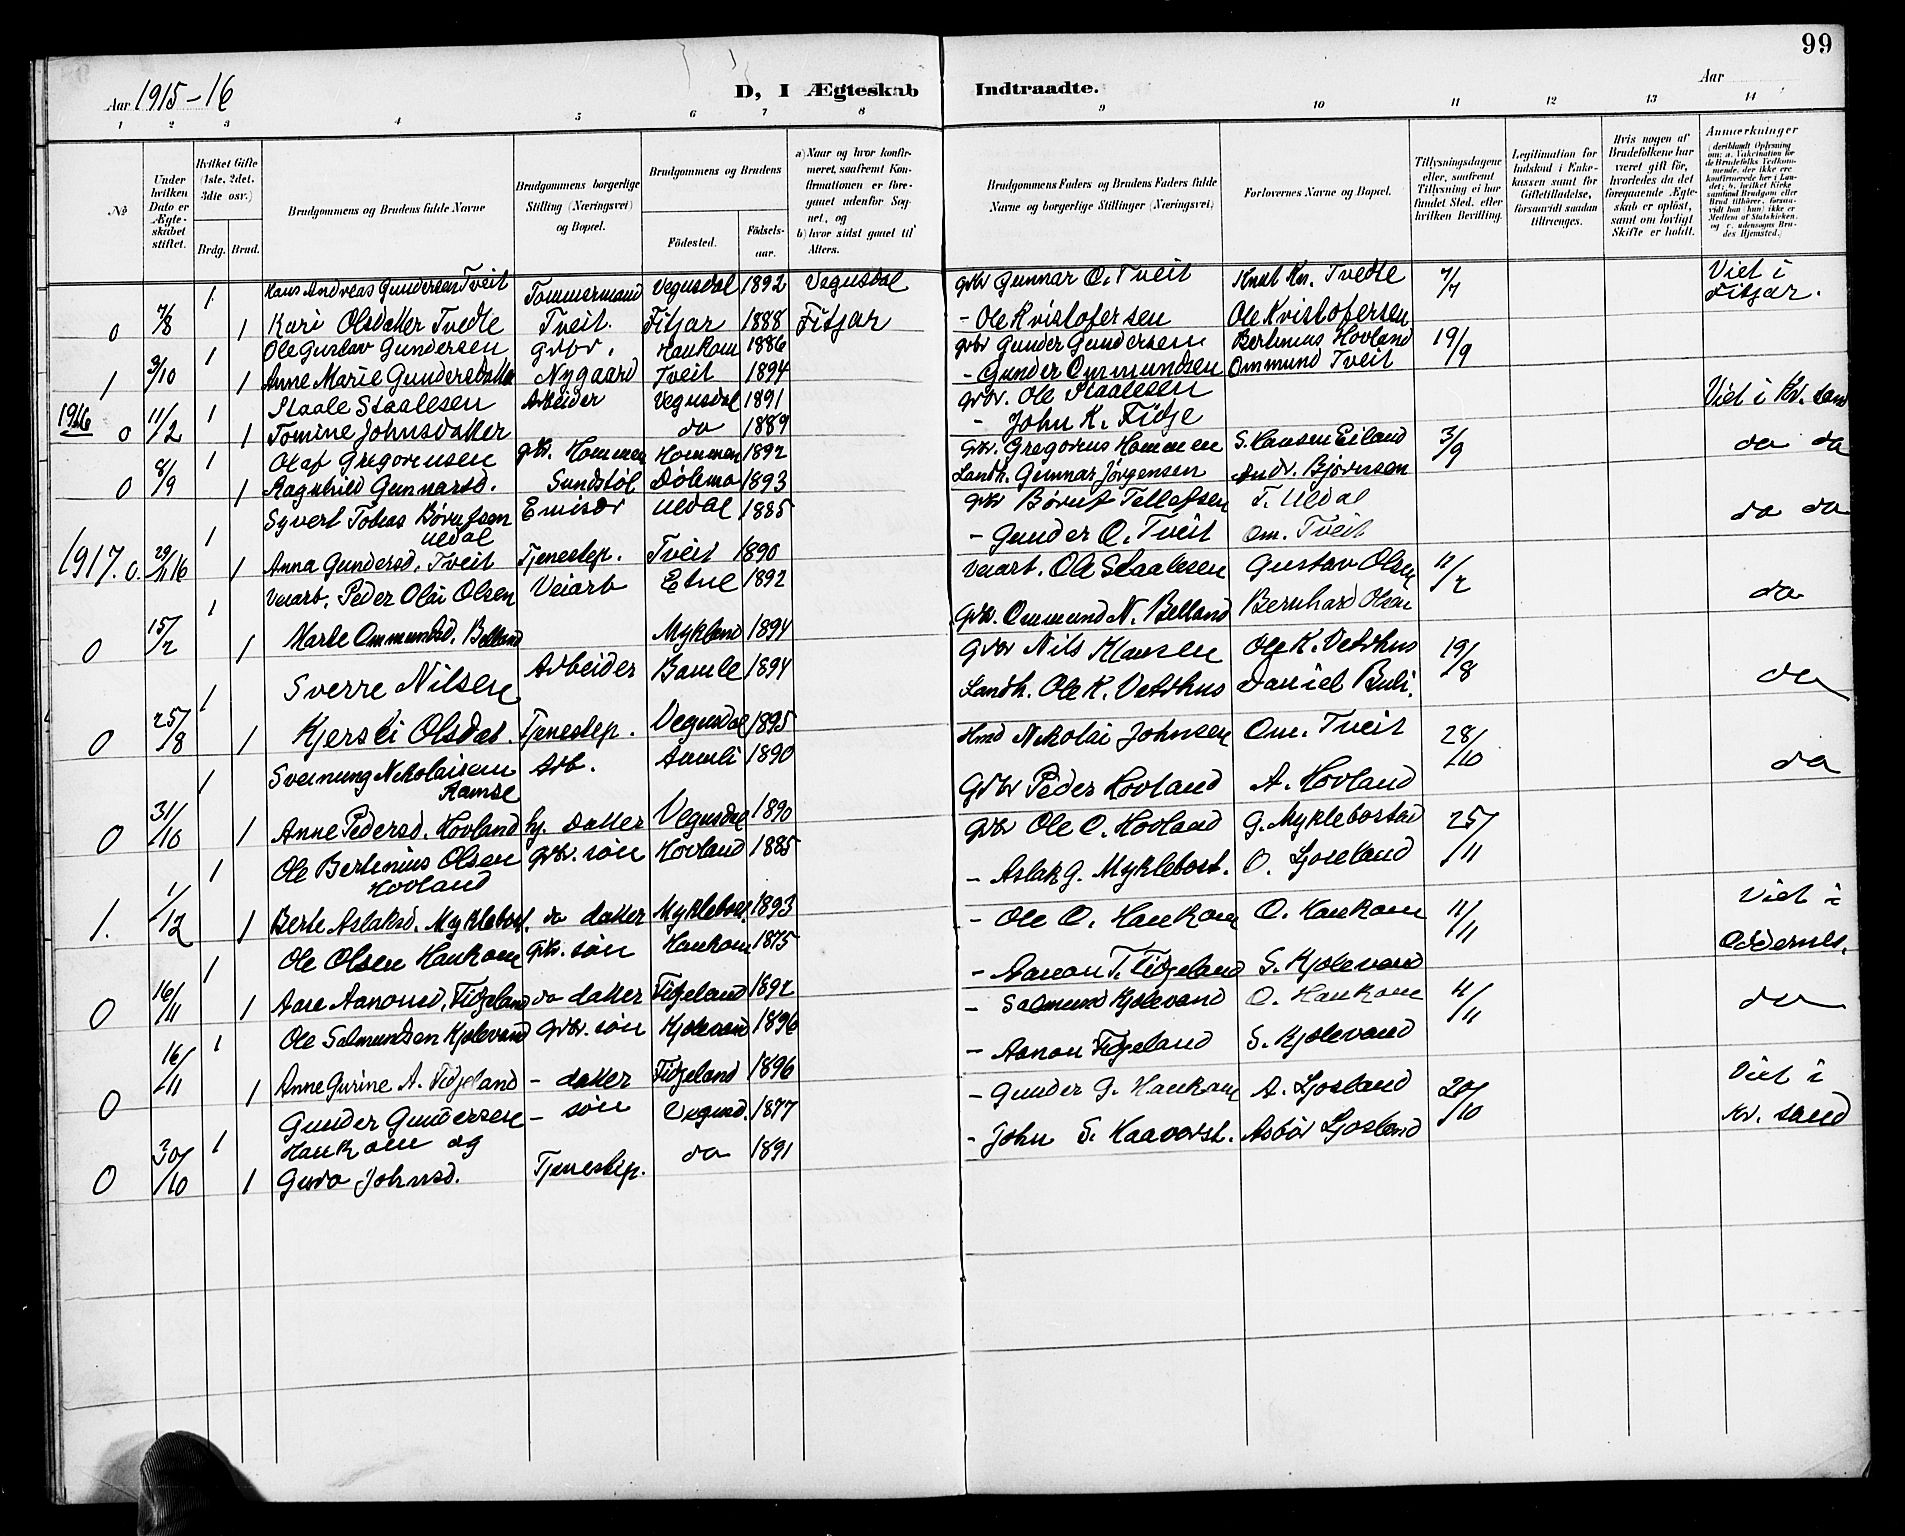 99
Aar 1915-16
D, I Ægteskab Indtraadte.
Aar
1 2 3 4 5 6 7 8 9 10 11 12 13 14
No
Under hvilken Dato er Ægteskabet stiftet.
Hvilket Gifte (1ste, 2det, 3die osv.)
Brdg. Brud.
Brudgommens og Brudens fulde Navne
Brudgommens borgerlige Stilling (Næringsvei) og Bopæl.
Brudgommens og Brudens
Fødested.
Fødselsaar.
a) Naar og hvor konfirmeret, saafremt Konfirmationen er foregaaet udenfor Sognet, og
b) hvor sidst gaaet til Alters.
Brudgommens Faders og Brudens Faders fulde Navne og borgerlige Stillinger (Næringsvei)
Forlovernes Navne og Bopæl.
Tillysningsdagene eller, saafremt Tillysning ei har fundet Sted, efter hvilken Bevilling.
Legitimation for Indskud i Enkekassen samt for Giftetilladelse, forsaavidt saadan tiltrænges.
Hvis nogen af Brudefolkene har været gift før, hvorledes da det foregaaende Ægteskab er opløst, samt om lovligt Skifte er holdt.
Anmærkninger (deriblandt Oplysning om: a. Vakcination for de Brudefolks Vedkommende, der ikke ere konfirmerede her i Landet; b. hvilket Kirkesamfund Brudgom eller Brud tilhører, forsaavidt han (hun) ikke er Medlem af Statskirken, og c. udensogns Brudes Hjemsted.)
1 Hans Andreas Gundersen Tveit Tømmermand Vegusdal 1892 Vegusdal gbr Gunnar O. Tveit Knut Kn. Tvedte 7/7 Viet i Fitjar.
0 7/8 1 Kari Olsdatter Tvedte Tveit. Fitjar 1888 Fitjar - Ole Kristofersen Ole Kristofersen
1 Ole Gustav Gundersen grbr. Haukom 1886 grbr Gunder Gundersen Bertinius Hovland 19/9
1 3/10 1 Anne Marie Gundersdatter Nygaard Tveit 1894 - Gunder Ommundsen Ommund Tveit
1 Staale Staalesen Arbeider Vegusdal 1891 grbr. Ole Staalesen Viet i Kr. sand
1916 0 11/2 1 Tomine Johnsdatter do 1889 - John K. Fidje
1 Olaf Gregoriusen gbr. Hommen Hommen 1892 Gbr. Gregorius Hommen S. Hansen Eiland 3/9 do do
0 8/9 1 Ragnhild Gunnarsd. Sundstøl Dølemo 1893 Landh. Gunnar Jørgensen Andr. Bjørnsen
1 Syvert Tobias Børufsen Uldal Emisær Uldal 1885 gbr Børuf Tellefsen T. Uldal do do
1917. 0. 29/11 16 1 Anna Gundersd. Tveit Tjenestep. Tveit 1890 - Gunder O. Tveit Om. Tveit
1 Veiarb. Peder Olai Olsen Veiarb Etne 1892 Veiarb. Ole Staalesen Gustav Olsen 11/2 do
0 15/2 1 Marte Ommundsd. Belland Mykland 1894 gbr. Ommund N. Belland Bernhard Olsen
1 Sverre Nilsen Arbeider Bamle 1894 Gbr Nils Hansen Ole K. Vetrhus 19/8 do
0 25/8 1 Kjersti Olsdat. Tjenestep. Vegusdal 1895 Landh. Ole K. Vetrhus Daniel Buli.
1 Sveinung Nikolaisen Ramse Arb. Aamli 1890 Hmd Nikolai Johnsen Om. Tveit 28/10 do
0 31/10 1 Anne Pedersd. Hovland hj. datter Vegusdal 1890 Grbr Peder Hovland A. Hovland
1 Ole Bertinius Olsen Hovland grbr. søn Hovland 1885 gbr Ole O. Hovland G. Myklebostad 25/11
1. 1/12 1 Berte Aslaksd. Myklebost. do datter Myklebost. 1893 - Aslak G. Myklebost. O. Ljoseland
1 Ole Olsen Haukom Gbr. søn Haukom 1875 - Ole O. Haukom O. Haukom 11/11 Viet i Oddernes.
0 16/11 1 Aase Aanonsd. Fidjeland do datter Fidjeland 1892 - Aanon T. Fidjeland S. Kjolevand
1 Ole Salmundsen Kjolevand Grbr. søn Kjolevand 1896 - Salmund Kjolevand O. Haukom 11/11 do
0 16/11 1 Anne Gurine A. Fidjeland - datter Fidjeland 1896 - Aanon Fidjeland S. Kjolevand
1 Gunder Gundersen Haukom og - søn Vegusd. 1877 - Gunder G. Haukom A. Ljosland 20/10 Viet i Kr. sand
0 30/10 1 Guro Johnsd. Tjenestep. do 1891 - John S. Haaverst. Asbør Ljosland